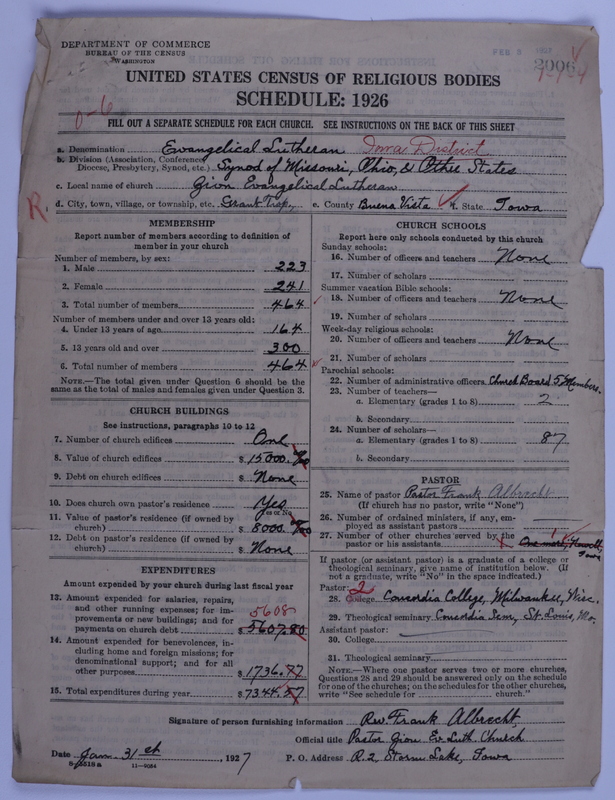 DEPARTMENT OF COMMERCE
BUREAU OF THE CENSUS
WASHINGTON
FEB 5 1927
UNITED STATES CENSUS OF RELIGIOUS BODIES
SCHEDULE: 1926
FILL OUT A SEPARATE SCHEDULE FOR EACH CHURCH. SEE INSTRUCTIONS ON THE BACK OF THIS SHEET
a. Denomination Evangelical Lutheran Iowa District
b. Division (Association, Conference, Diocese, Presbytery, Synod, etc.) Synod of Missouri, Ohio, & Other States
c. Local name of church Zion Evangelical Lutheran
d. City, town, village, or township, etc. Grant Twp. e. County Buena Vista f. State Iowa
R.
MEMBERSHIP
Report number of members according to definition of
member in your church
Number of members, by sex:
1. Male 223
2. Female 241
3. Total number of members 464
Number of members under and over 13 years old:
4. Under 13 years of age 164
5. 13 years old and over 300
6. Total number of members 464
NOTE.—The total given under Question 6 should be the
same as the total of males and females given under Question 3.
CHURCH BUILDINGS
See instructions, paragraphs 10 to 12
7. Number of church edifices One
8. Value of church edifices $ 15000.
9. Debt on church edifices $ None
10. Does church own pastor's residence Yes
Yes or No
11. Value of pastor's residence (if owned by
church) $ 8000.
12. Debt on pastor's residence (if owned by
church) $ None
EXPENDITURES
Amount expended by your church during last fiscal year
13. Amount expended for salaries, repairs,
and other running expenses; for im-
provements or new buildings; and for 5608
payments on church debt $ 5607.80
14. Amount expended for benevolences, in-
cluding home and foreign missions; for
denominational support; and for all
other purposes $ 1736.77
15. Total expenditures during year $ 7344.57
CHURCH SCHOOLS
Report here only schools conducted by this church
Sunday schools:
16. Number of officers and teachers None
17. Number of scholars
Summer vacation Bible schools:
18. Number of officers and teachers None
19. Number of scholars
Week-day religious schools:
20. Number of officers and teachers None
21. Number of scholars
Parochial schools:
22. Number of administrative officers Church Board 5 Members.
23. Number of teachers—
a. Elementary (grades 1 to 8) 2
b. Secondary
24. Number of scholars—
a. Elementary (grades 1 to 8) 87
b. Secondary
PASTOR
25. Name of pastor Pastor Frank Albrecht
(If church has no pastor, write "None")
26. Number of ordained ministers, if any, em-
ployed as assistant pastors
27. Number of other churches served by the
pastor or his assistants
If pastor (or assistant pastor) is a graduate of a college or
theological seminary, give name of institution below. (If
not a graduate, write "No" in the space indicated.)
Pastor: 2
28. College Concordia College, Milwaukee, Wisc.
29. Theological seminary Concordia Sem, St. Louis, Mo.
Assistant pastor:
30. College
31. Theological seminary
NOTE.—Where one pastor serves two or more churches,
Questions 28 and 29 should be answered only on the schedule
for one of the churches; on the schedules for the other churches,
write "See schedule for church."
Signature of person furnishing information Rev Frank Albrecht
Official title Pastor Zion Ev Luth. Church
Date Jan. 31 st, 1927 P. O. Address R.2, Storm Lake, Iowa
11—9054